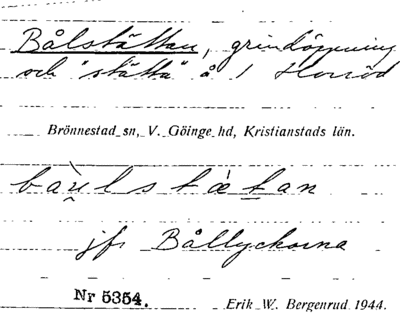 Bålstättan, grindöppning
och "stätta" å 1 Horröd
Brönnestad sn, V. Göinge hd, Kristianstads län.
jfr Bållyckorna
Nr 5354.
Erik W. Bergenrud 1944.